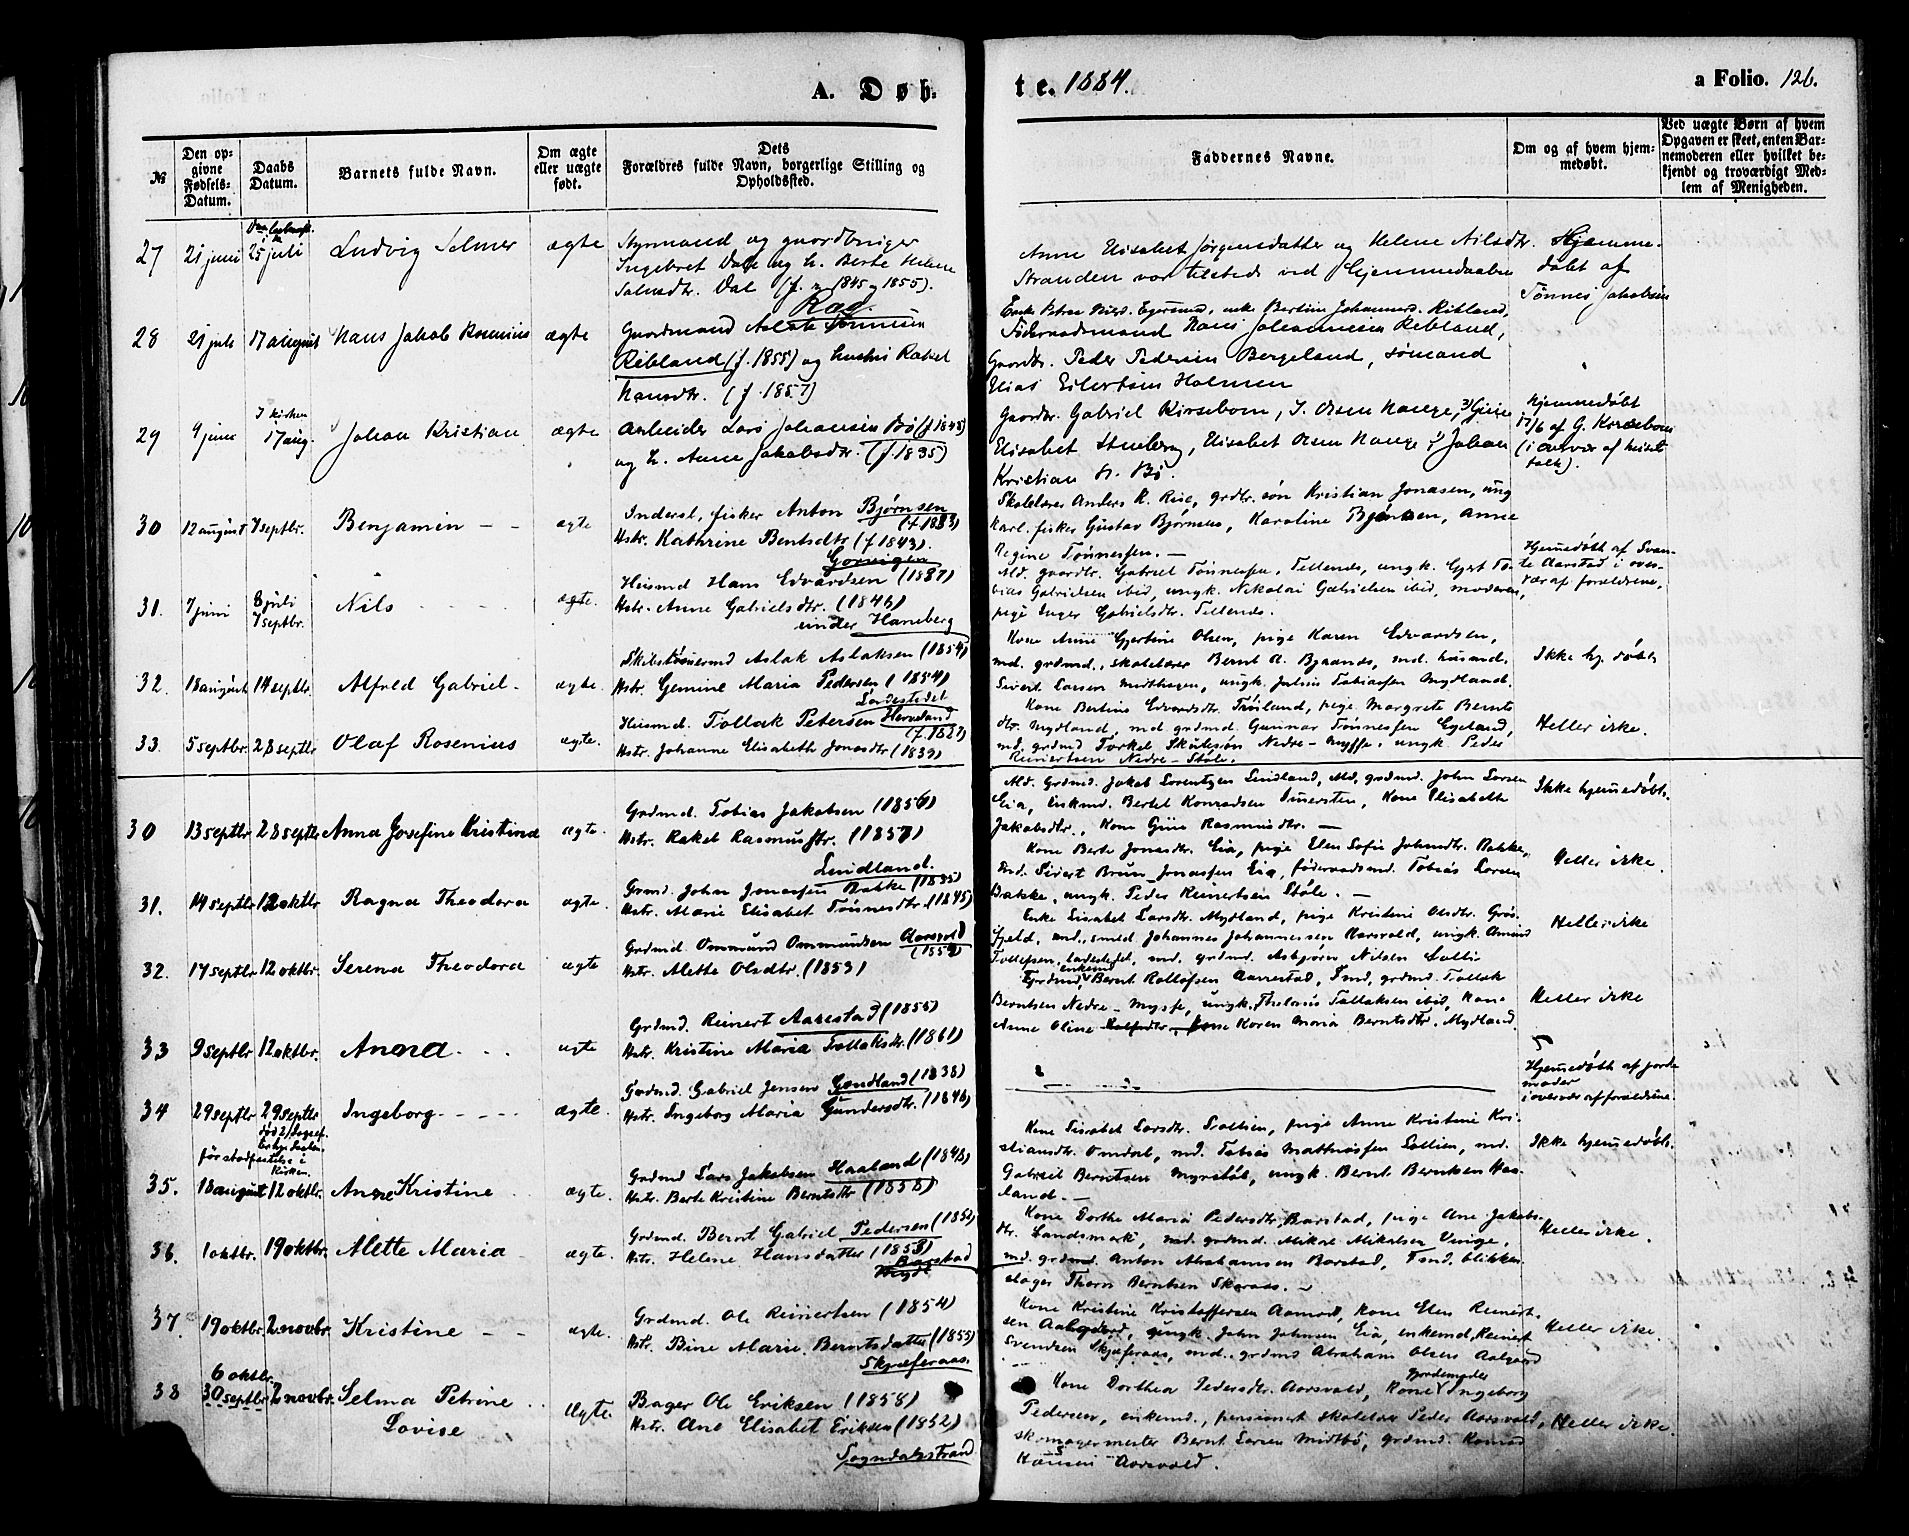 A. Døb-
te. 1884.
a Folio. 126.
№
Den op-
givne
Fødsels-
Datum.
Daabs
Datum.
Barnets fulde Navn.
Om ægte
eller uægte
født.
Dets
Forældres fulde Navn, borgerlige Stilling og
Opholdssted.
Faddernes Navne.
Om og af hvem hjem-
medøbt.
Ved uægte Børn af hvem
Opgaven er skeet, enten Bar-
nemoderen eller hvilket be-
kjendt og troværdigt Med-
lem af Menigheden.
27 21 juni 25 juli Ludvig Selmer ægte Styrmand og gaardbruger
Ingebret Dahl og h. Berte Helene
Salmdtr. Dal (f. 1845 og 1855).
Anne Elisabet Jørgensdatter og Helene Nilsdtr.
Stranden var tilstede ved hjemmedaaben
Hjemme-
døbt af
Tønnes Jakobsen
28 21 juli 17 august Hans Jakob Rosenius ægte Gaardmand Aslak Tønnesen
Rebland (f. 1855) og hustru Rakel
Hansdtr. (f. 1857)
Enke Petrea Nilsd. Egersund, enke Bertine Johannesd. Rebland,
Føderaadsmand Hans Johannesen Rebland,
Gaardbr. Peder Pedersen Bergeland, sømand
Elias Eilertsen Holmen
29 9 juni I kirken
17 aug. Johan Kristian ægte Arbeider Lars Johansen Bø (f 1848)
og h. Anne Jakobsdtr. (f. 1835)
Gaardbr. Gabriel Kirsebom, I. Olsen Hauge,
Elisabet Steneberg, Elisabet Olsen Hauge Johan
Kristian Bø.
Hjemmedøbt
af G. Kirsebom
(i overvær af husets
folk).
30 12 august 7 septbr. Benjamin - - ægte Inderst, fisker Anton Bjørnsen
(f 1883)
Hstr. Kathrine Bentsdtr (f 1843).
Skolelærer Anders K. Rise, grdbr. søn Kristian Jonasen, ung
karl. fisker Gustav Bjørnsen, Karoline Bjørnsen, Anne
Regine Tønnessen. —
31. 7 juni 8 juli
7 septbr. Nils - - - - ægte. Husmd Hans Edvardsen (1837)
Hstr. Anne Gabrielsdtr. (1846)
under Haneberg
Md. gaardbr. Gabriel Tønnessen, Tellenes, ungk. Gjert To-
bias Gabrielsen ibid, ungk. Nikolai Gabrielsen ibid, moderen,
pige Inger Gabrielsdtr. Tellenes.
Hjemmedøbt af Svan-
te Aarstad i over-
vær af forældrene.
32. 18 august 14 septbr. Alfred Gabriel - ægte. Skibstømmermd Aslak Aslaksen (1854)
Hstr. Gemine Maria Pedersen (1854)
Ladestedet
Kone Anne Gjertine Olsen, pige Karen Edvardsen,
md. grdmd., skolelærer Bernt A. Bjaanes, md. husmd.
Sivert Larsen Midthagen, ungk. Julius Tobiassen Mydland.
Ikke hj. døbt
33. 5 septbr. 28 septbr Olaf Rosenius ægte. Husmd. Tollak Petersen Herveland
Hstr. Johanne Elisabeth Jonasdtr (1839)
Kone Bertine Edvardsdtr. Frøiland, pige Margrete Bernts
dtr. Mydland, md grdmd. Gunnar Tønnessen Egeland,
md. grdmd Torkel Skulesøn Nedre-Mysse, ungk Peder
Reinertsen Nedre-Støle.
Heller ikke.
30 13 septbr 28 septbr Anna Josefine Kristina ægte. Grdmd. Tobias Jakobsen (1856)
Hstr. Rakel Rasmusdtr. (1857)
Lindland.
Md. Grdmd. Jakob Lorentzen Lindland, Md. grdmd. John Larsen
Eia, Enkmd. Bertel Konradsen Immersten, Kone Elisabeth
Jakobsdtr., Kone Gine Rasmusdtr. —
Ikke hjemmedøbt.
31. 14 septbr 12 oktbr Ragna Theodora ægte. Grmd. John Jonassen Bakke (1835)
Hstr. Marie Elisabet Tønnesdtr. (1845)
Kone Berte Jonasdtr. Eia, pige Elen Sofie Johnsdtr. Bakke,
Md. Sivert Brun Jonassen Eia, føderaadsmd. Tobias Larsen
Bakke, ungk. Peder Reinertsen Støle. —
Heller ikke.
32. 17 septbr 12 oktbr. Serena Theodora ægte Grdmd. Ommund Ommundsen Aarsvold
Hstr. Mette Olsdtr. (1853)
Enke Lisabet Larsdtr. Mydland, pige Kristine Olsdtr. Grøs-
fjeld, md., smed Johannes Johannessen Aarsvold, ungk. Amund
Tollefsen, ladestedet, md. grdmd. Asbjørn Nilsen
Heller ikke
33 9 septbr 12 oktbr. Anna - . . ægte Grdmd. Reinert Aarestad (1855)
Hstr. Kristine Maria Tollaksdtr. (1861)
enkemd
Grdmd. Bernt Rollofsen Aarrestad, grdmd. Tollak
Berntsen Nedre-Mysse, ungk. Tollaksen ibid, Kone
Anne Oline Kone Karen Maria Berntsdtr. Mydland.
Heller ikke
34 29 septbr 29 septbr Ingeborg - - - - ægte. Grdmd. Gabriel Jensen Gandland (1838)
Hstr. Ingeborg Maria Gundersdtr. (1846)
Hjemmedøbt af jorde
moder
i overvær af forældrene.
35. 18 august 12 oktbr. Anne Kristine ægte. Grdmd Lars Jakobsen Haaland (1848)
Hstr. Berte Kristine Berntsdtr (1858)
Kone Lisabet Larsdtr. pige Anne Kristine Kri-
stiansdtr. Omdal, md. Tobias Mathiassen md.
Gabriel Berntsen Myrstøl, ungk. Bernt Berntsen Haa-
land. —
Ikke hjemmedøbt.
36. 1 oktbr. 19 oktbr. Mette Maria ægte. Grdmd. Bernt Gabriel Pedersen (1852)
Hstr. Helene Hansdatter (1853)
Barstad
Kone Dorthe Maria Pedersdtr. Barstad, pige Ane Jakobs-
dtr. Landsmark, md. grdmd. Mikal Mikalsen
md. grdmd. Anton Abrahamsen Barstad, blikken-
slager Thorn Berntsen Skaraas. —
Heller ikke.
37. 19 oktbr. 2 novbr. Kristine - - ægte. Grdmd. Ole Reinertsen (1854)
Hstr. Bine Marie Berntsdatter (1855)
Skjæferaas.
Kone Kristine Kristoffersen Aamod, kone Elen Reinert-
sen Aalgaard, ungk. John Johnsen Eia, enkemd. Reinert
Svendsen Skjæferaas, md. grdmd Abraham Olsen Aalgaard
Heller ikke.
38 6 oktbr.
30 septbr. 2 novbr. Selma Petrine
Lovise ægte. Bager Ole Eriksen (1858)
Hstr. Ane Elisabet Eriksen (1852)
Sogndalsstrand
Kone Dorthea Pedersdtr. Aarsvold, Kone jordemoder Ingeborg
Pedersen, enkemd., pensionert skolelær Peder Aarsvold,
skomagermester Bernt Larsen Midtbø, grdmd. Konrad
Hansen Aarsvold.
Heller ikke.